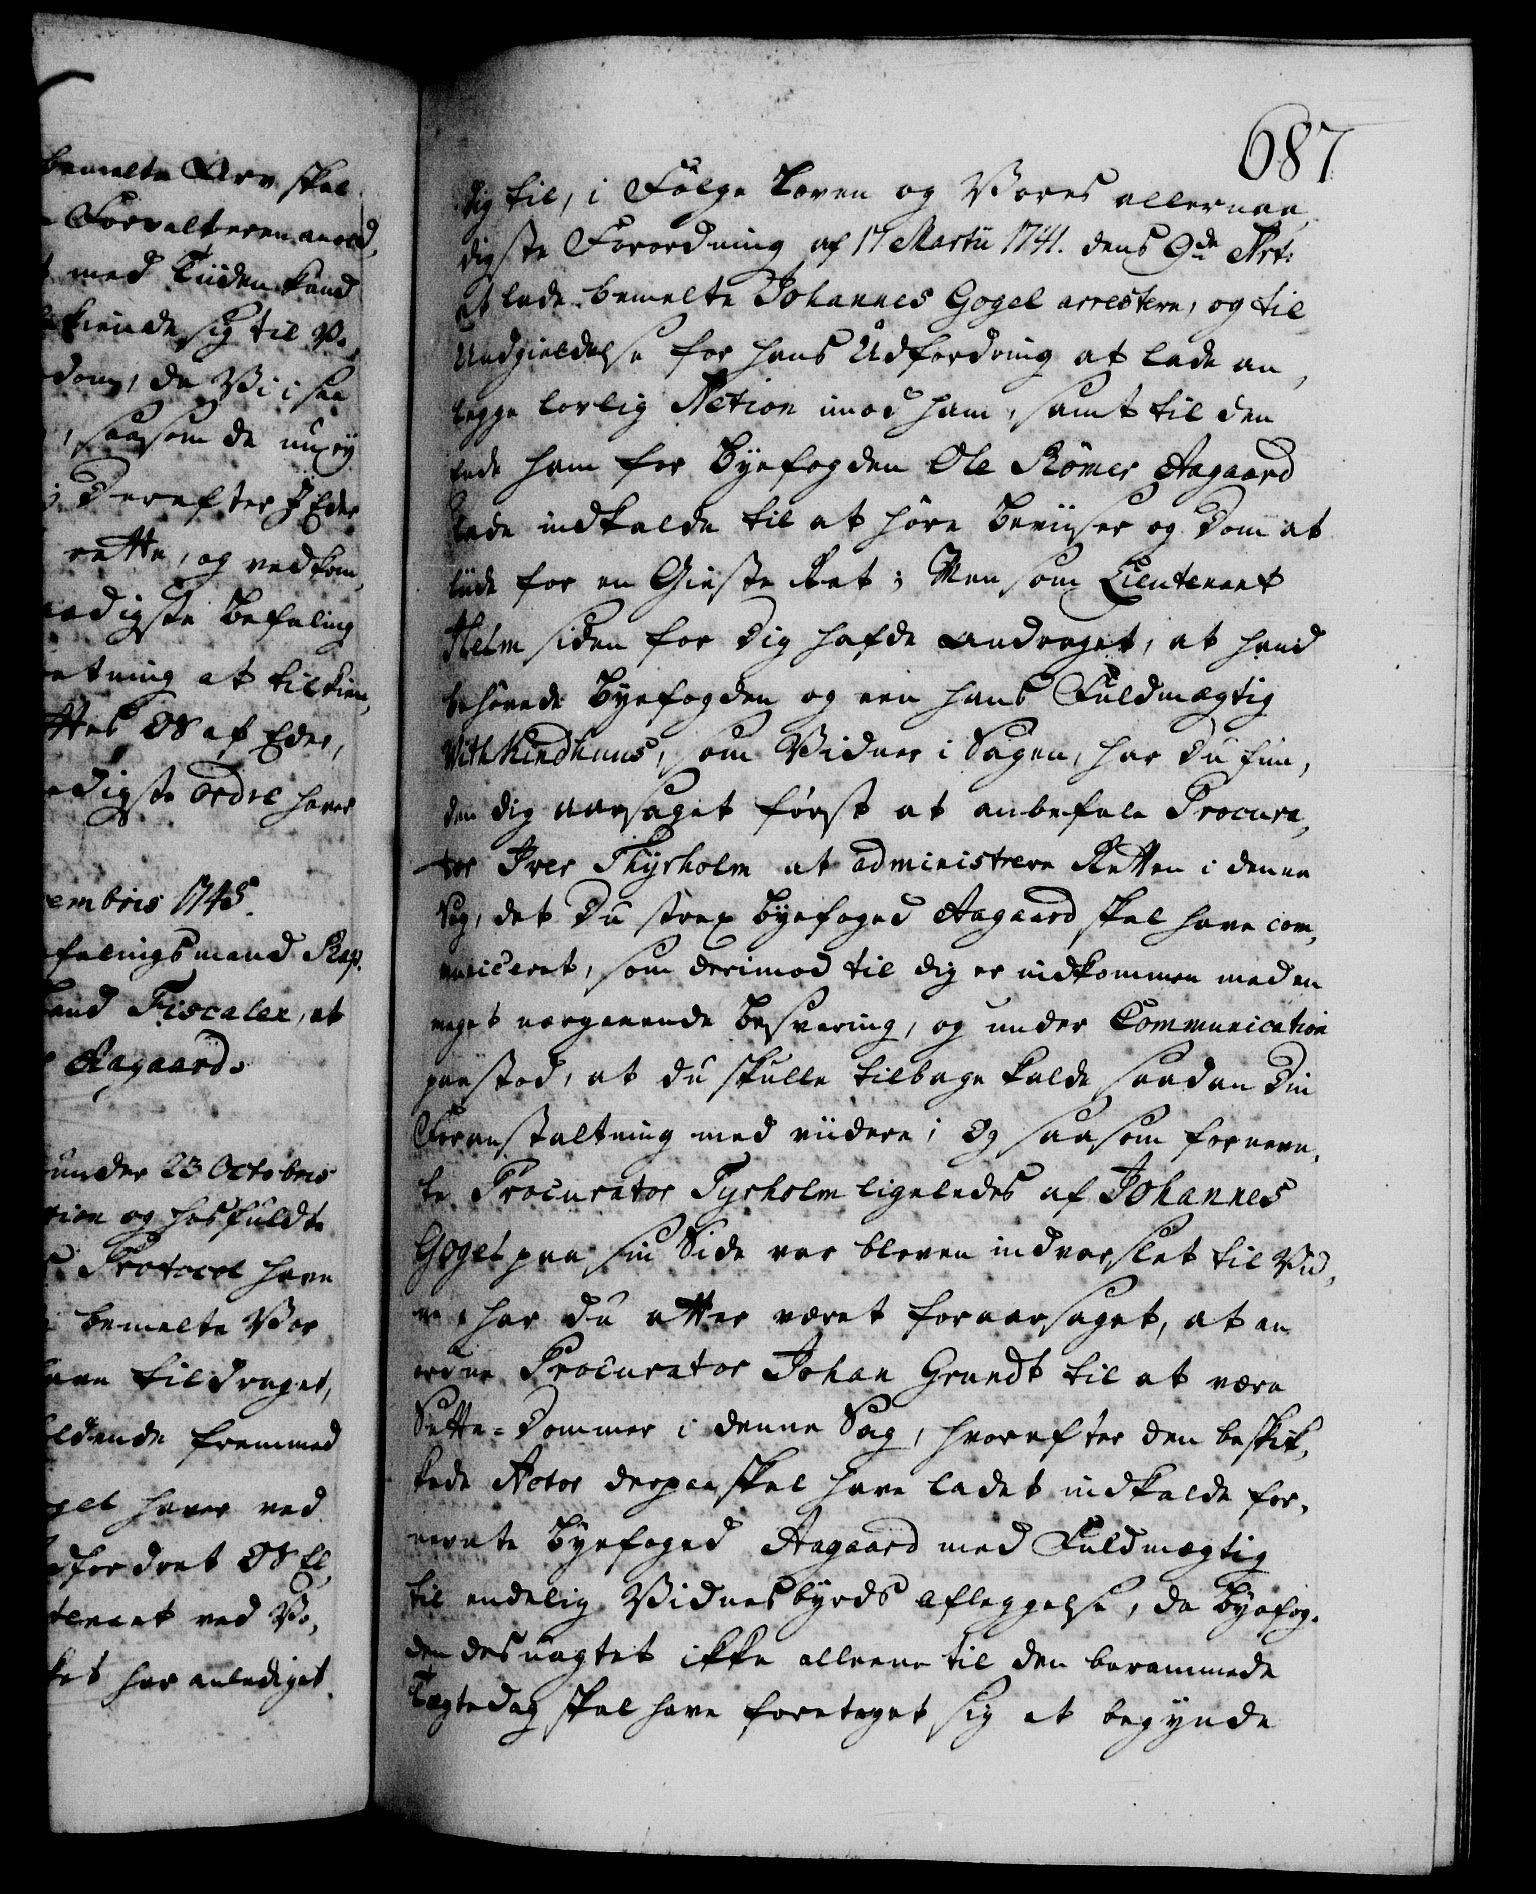 bemelte Arv skal
Forvalteren anvid,
med Tiiden kand
kiende sig til Po,
dom, da Vi i saa
, saasom de nu ey
Derefter I Eder
rette, og vedkom,
naadigste Befaling
retning at tilkien,
ttes OS af Eder,
adigste ordre haver
embris 1745.
falingsmand Rap.
land Fiscaler, at
Aagaard.
under 23 Octobris
tion og hosfuldte
Protocol have
bemelte Vor
have tildraget,
ldende fremmed
gel haver ved
dfordret OS El,
tenant ved Po,
ket har anlediget
687
dig til, i Følge Loven og Vores allernaa,
digste Forordning af 17 Martii 1741. dens 9de Art:
at lade bemelte Johannes Gogel arrestere, og til
Undgieldelse for hans Udfordring at lade an,
legge lovlig Action imod ham, samt til den
ende ham for Byefogden Ole Rømer Aagaard
lade indkalde til at høre Beviiser og Dom at
liide for en Gieste Ret; Men som Lieutenant
Helm siden for Dig hafde Andraget, at hand
behøvede Byefogden og een hans Fuldmægtig
Withkindhuus, som Vidner i Sagen, har Du fun,
den dig aarsaget først at anbefale Procura,
tor Iver Thyrholm at administrere Retten i denne
Sag, det Du strax Byefoged Aagaard skal have com,
municeret, som derimod til dig er indkommen med en
meget nærgaaende Besværing, og under Communication
paastod, at du skulle tilbage kalde saadan Din
Foranstaltning med viidere; Og saasom fornevn,
te Procurator Tyrholm ligeledes af Johannes
Gogel paa sin Side var bleven indvarslet til Vid,
ne, har du atter været foraarsaget, at an
ordne Procurator Johan Grundt til at være
Sette-Dommer i denne Sag, hvorefter den beskik,
kede Actor derpaa skal have ladet indkalde for,
nevnte Byefoged Aagaard med Fuldmægtig
til endelig Vidnesbyrds Afleggelse, da Byefog,
den des uagtet ikke alleene til den berammede
Tægtedag skal have foretaget sig at begynde